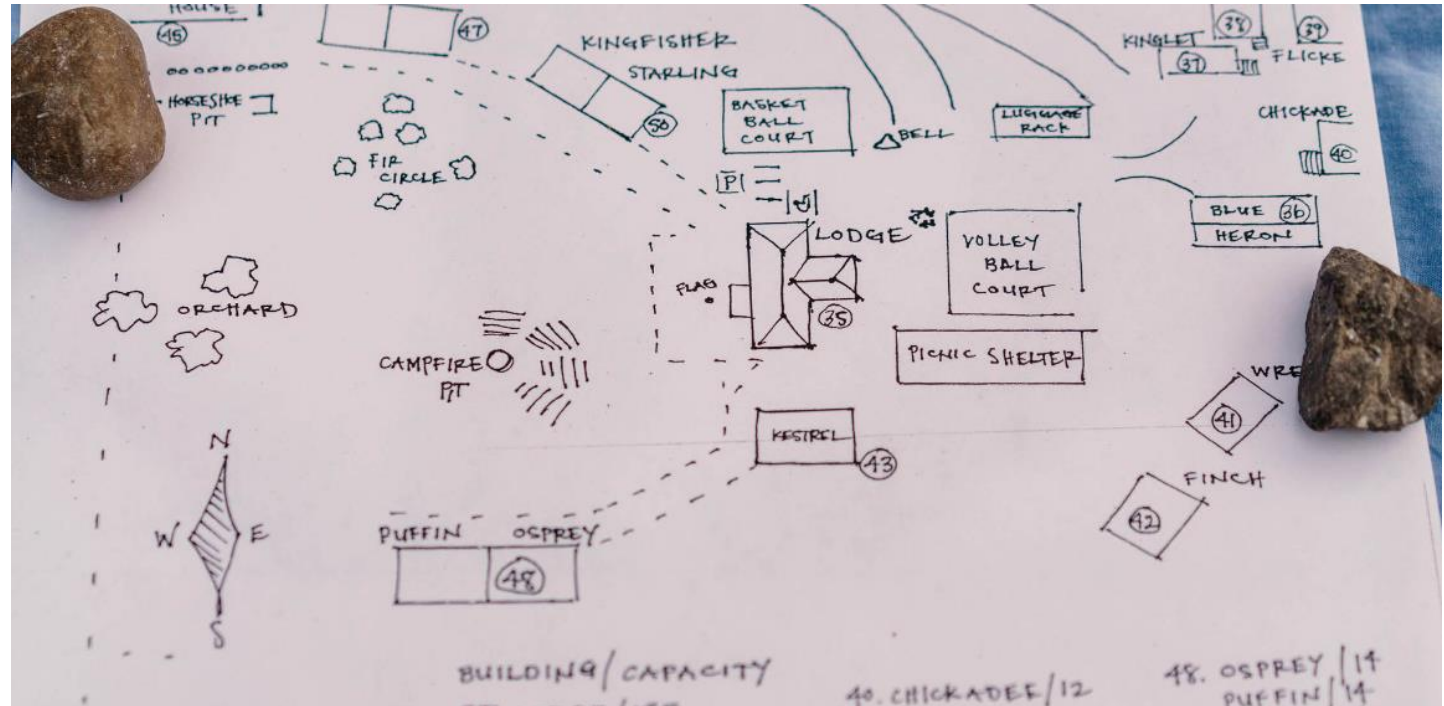 HOUSE
45
47
KINGFISHER
STARLING
50
38
39
KINGLET
37
FLICKE
HORSESHOE
PIT
BASKET
BALL
COURT
BELL
LUGGAGE
RACK
CHICKADE
40
FIR
CIRCLE
P
BLUE 36
HERON
LODGE
VOLLEY
BALL
COURT
FLAG
35
ORCHARD
CAMPFIRE
PIT
PICNIC SHELTER
WRE
41
KESTREL
43
FINCH
42
N
W E
S
PUFFIN OSPREY
48
BUILDING/CAPACITY
40. CHICKADEE/12
48. OSPREY/14
PUFFIN/14